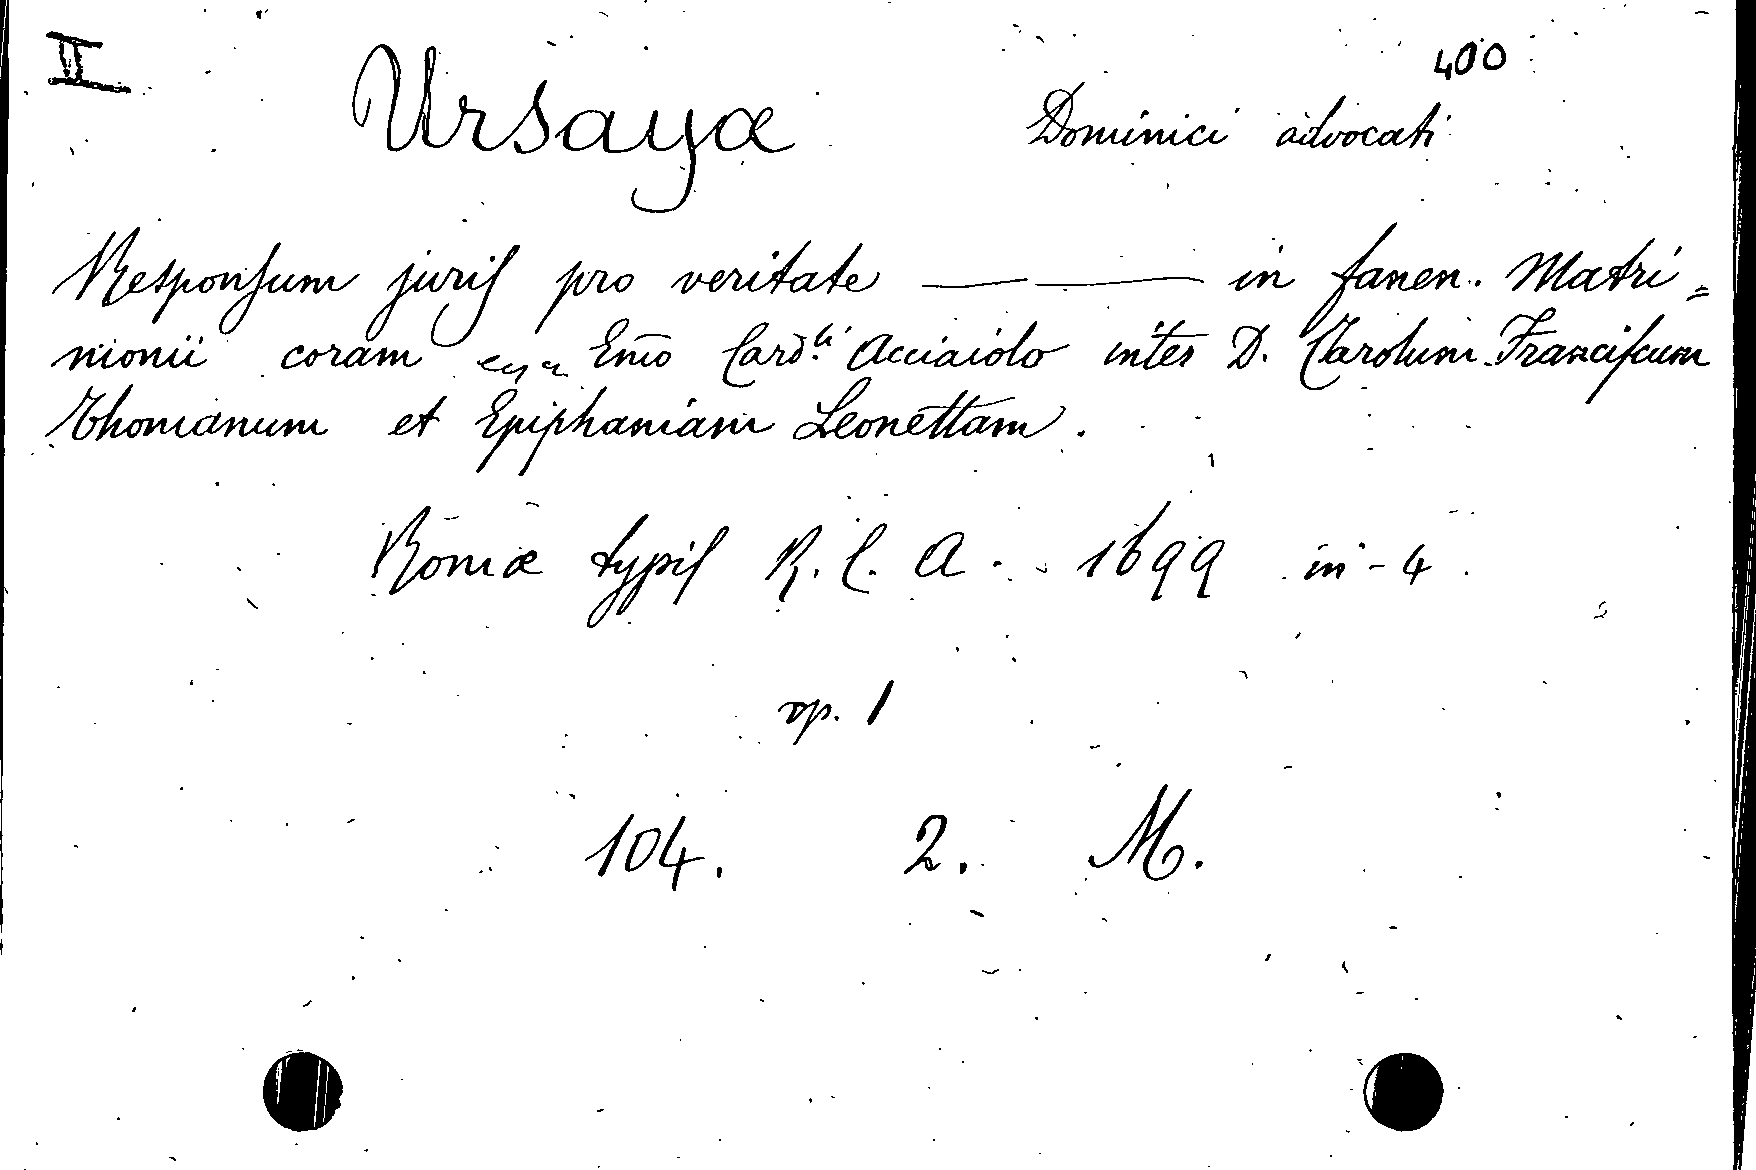 II
400
Ursayæ Dominici advocati
Responsum juris pro veritate —— —— in fanen. Matri=
monii coram Em̄o Card.li Acciaiolo inter D. Carolum Franciscum
Thomanum et Epiphaniam Leonettam.
Romæ typis R. C. A. 1699 in-4
op. 1
104. 2. M.